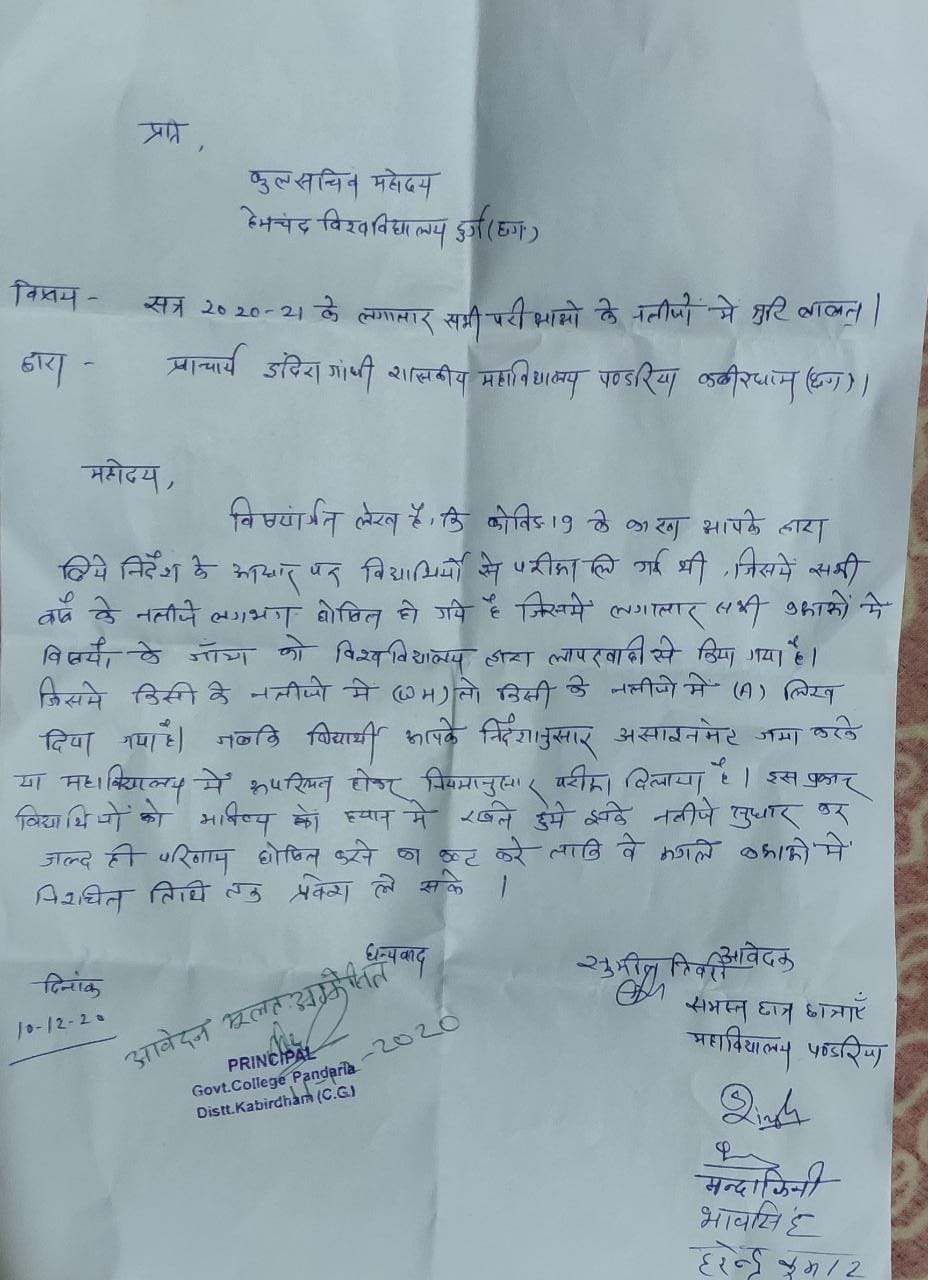 प्रति,
कुलसचिव महोदय
हेमचंद विश्वविद्यालय दुर्ग (छग)
विषय - सत्र 2020-21 के लगातार सभी परीक्षाओ के नतीजों मे त्रुटि बाबत्।
द्वारा - प्राचार्य इंदिरा गांधी शासकीय महाविद्यालय पण्डरिया कबीरधाम (छग)।
महोदय,
विषयांर्गत लेख है, कि कोविड-19 के कारण आपके द्वारा
दिये निर्देश के आधार पर विद्यार्थियों से परीक्षा लि गई थी, जिसमें सभी
वर्ष के नतीजे लगभग घोषित हो गये है जिसमें लगातार सभी कक्षाओं मे
विषयों के जाँच को विश्वविद्यालय द्वारा लापरवाही से किया गया है।
जिसमे किसी के नतीजो में (WH) तो किसी के नतीजो में (A) लिख
दिया गया है। जबकि विद्यार्थी आपके निर्देशानुसार असाइनमेंट जमा करके
या महाविद्यालय में उपस्थित होकर नियमानुसार परीक्षा दिलाया है। इस प्रकार
विद्यार्थियों को भविष्य को ध्यान मे रखते हुये इनके नतीजे सुधार कर
जल्द ही परिणाम घोषित करने का कष्ट करे ताकि वे अगले कक्षाओं में
निर्धारित तिथि तक प्रवेश ले सके ।
धन्यवाद
दिनांक
10-12-20
आवेदक
सुनील तिवारी
समस्त छात्र छात्राएँ
महाविद्यालय पण्डरिया
आवेदन मूलतः अग्रेषित
-2020
PRINCIPAL
Govt.College Pandaria
Distt.Kabirdham (C.G.)
Singh
मन्दाकिनी
भावसिंह
हरेन्द्र कुमार